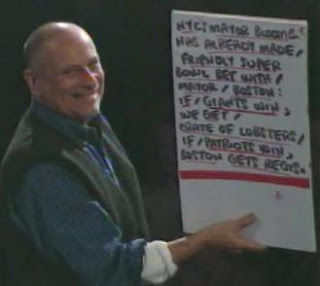 NYC; MAYOR BLOOMB.
HAS ALREADY MADE/
FRIENDLY SUPER
BOWL BET WITH/
MAYOR/BOSTON:
IF/GIANTS WIN,
WE GET/
CRATE OF LOBSTERS/
IF/PATRIOTS WIN,
BOSTON GETS REGIS.